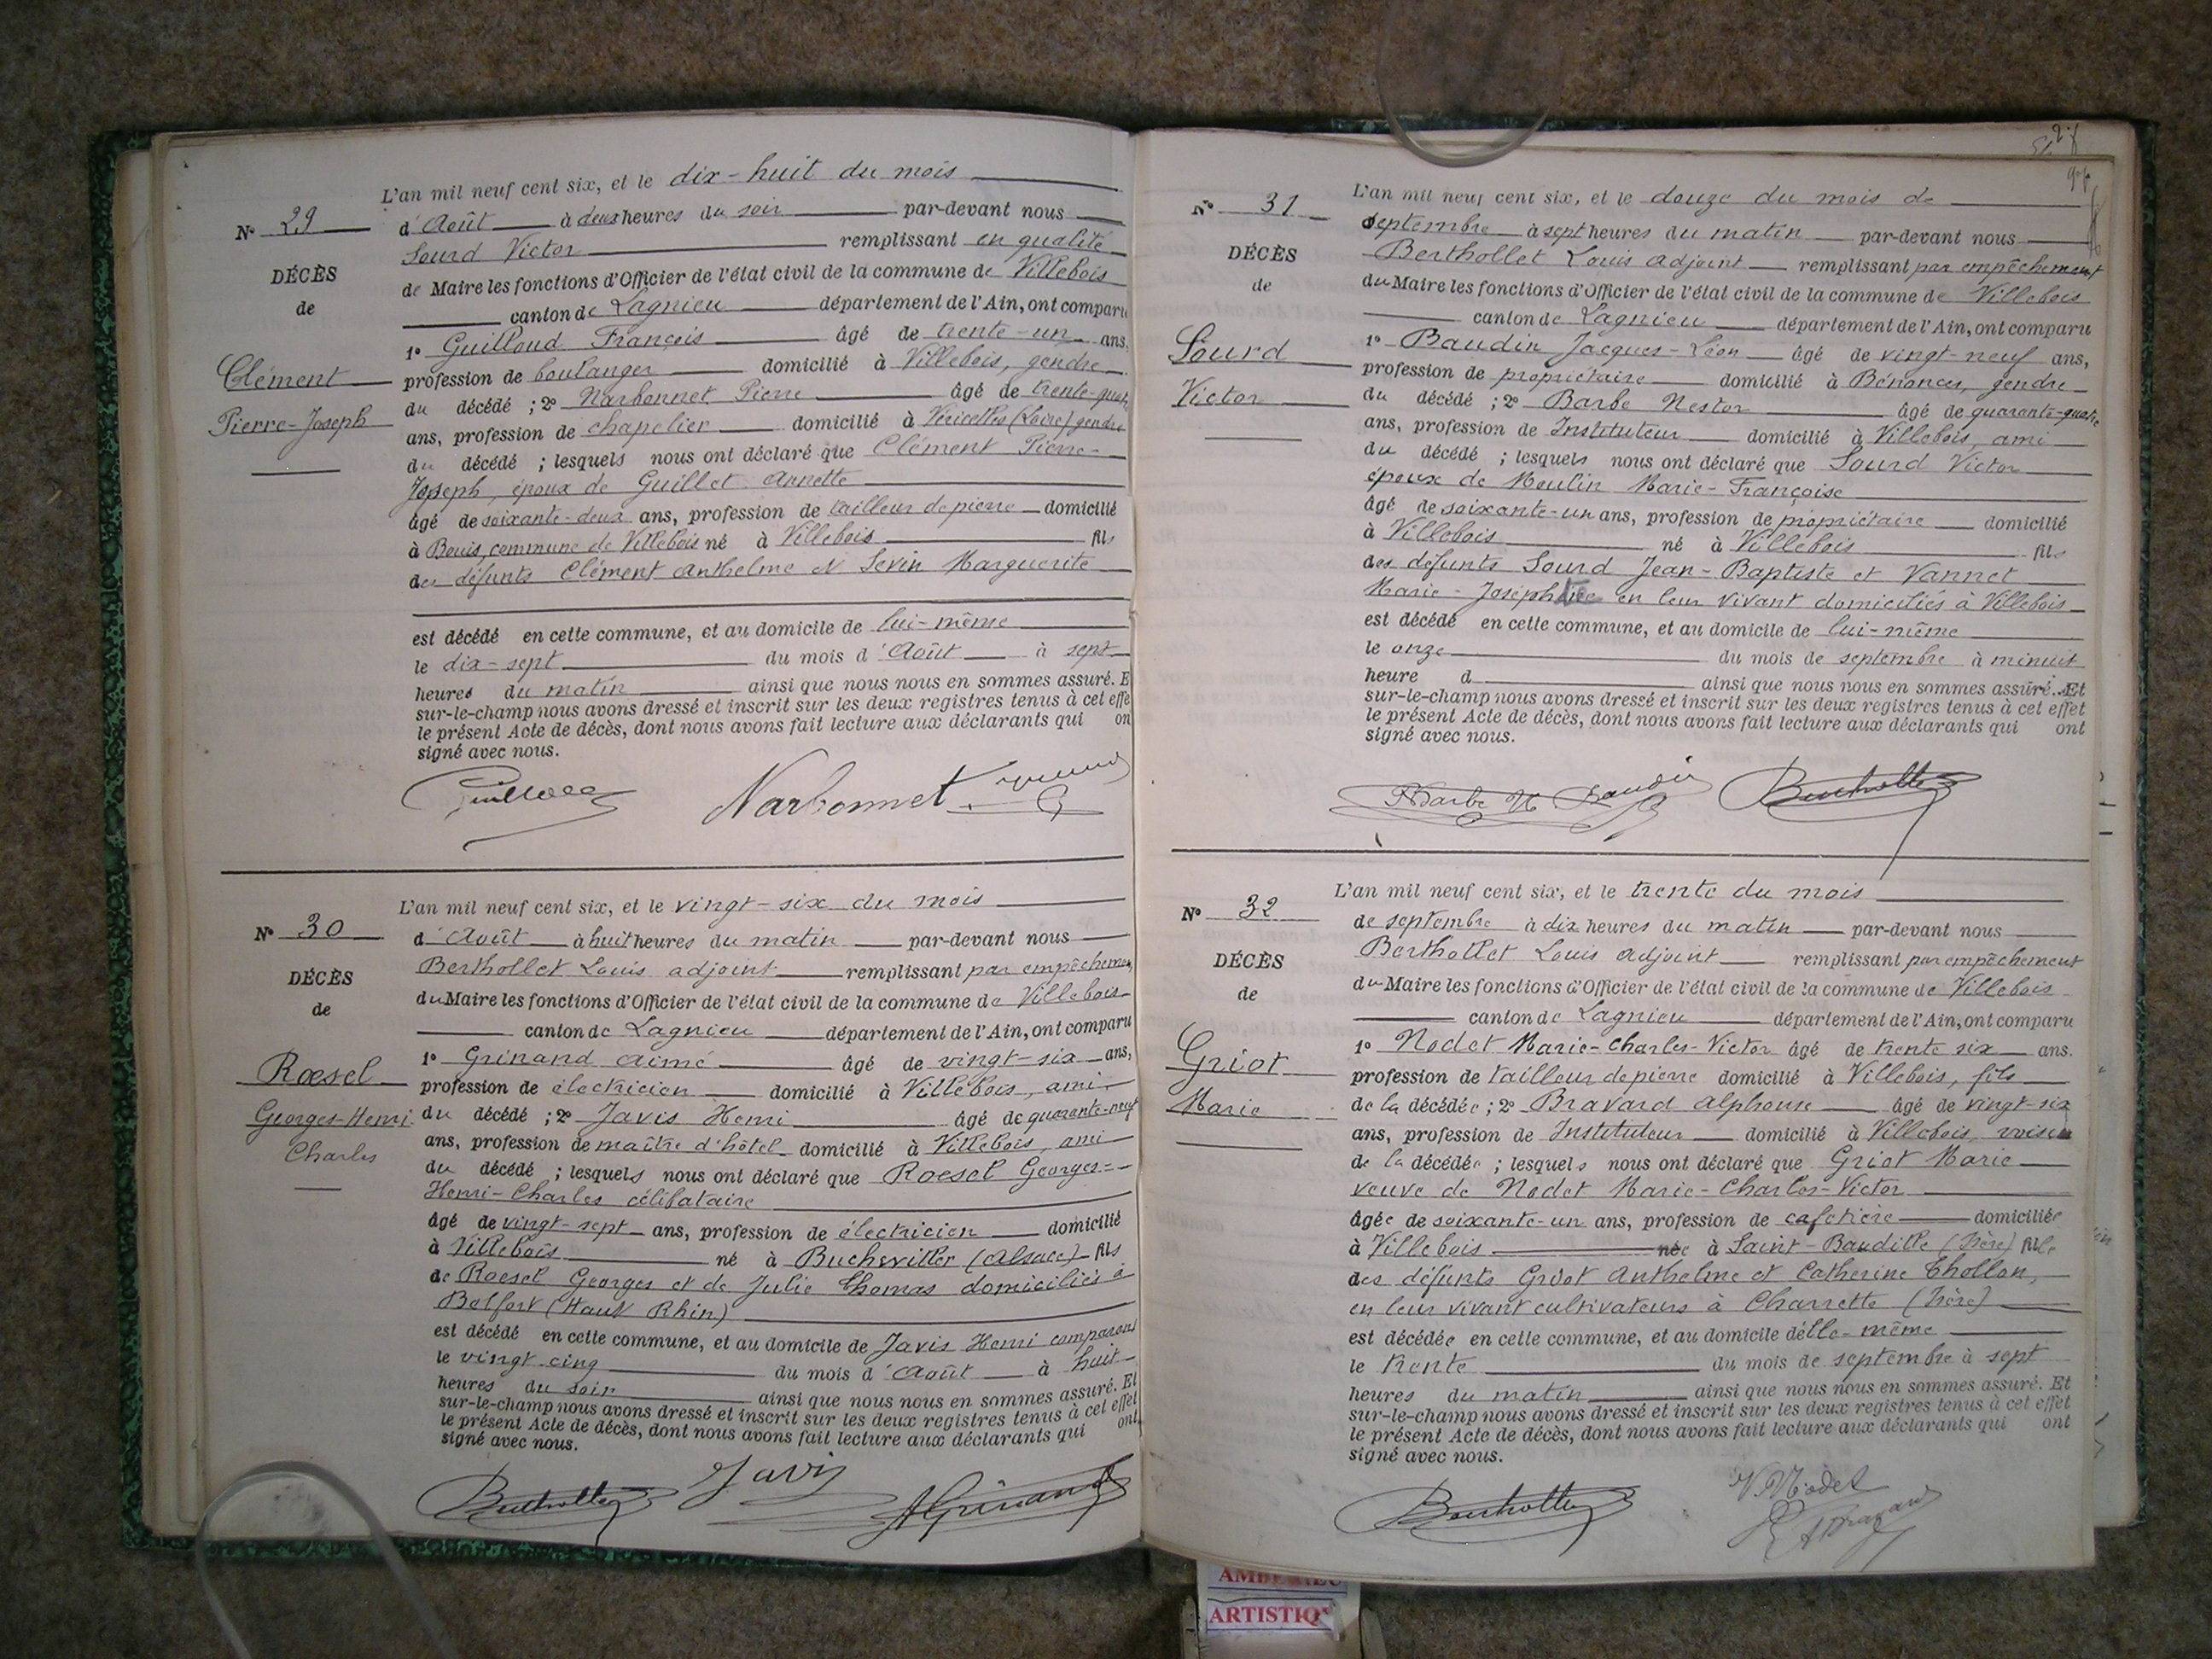 L'an mil neuf cent six, et le dix-huit du mois
N° 29
d'Août à deux heures du soir par-devant nous
Sourd Victor remplissant en qualité
DÉCÈS
de Maire les fonctions d'Officier de l'état civil de la commune de Villebois
de
canton de Lagnieu département de l'Ain, ont comparu
1° Guilloud François âgé de trente-un ans,
Clément
profession de boulanger domicilié à Villebois, gendre
Pierre-Joseph
du décédé ; 2° Narbonnet Pierre âgé de trente-quat
ans, profession de chapelier domicilié à (Loire) gendre
du décédé ; lesquels nous ont déclaré que Clément Pierre-
Joseph, époux de Guillet Annette
âgé de soixante-deux ans, profession de tailleur de pierre domicilié
à Bouis, commune de Villebois né à Villebois fils
des défunts Clément Anthelme et Sevin Marguerite
est décédé en cette commune, et au domicile de lui-même
le dix-sept du mois d'Août à sept
heures du matin ainsi que nous nous en sommes assuré. E
sur-le-champ nous avons dressé et inscrit sur les deux registres tenus à cet effe
le présent Acte de décès, dont nous avons fait lecture aux déclarants qui on
signé avec nous.
Narbonnet
L'an mil neuf cent six, et le vingt-six du mois
N° 30
d'Août à huit heures du matin par-devant nous
Berthollet Louis adjoint remplissant par empêchemen
DÉCÈS
du Maire les fonctions d'Officier de l'état civil de la commune de Villebois
de
canton de Lagnieu département de l'Ain, ont comparu
1° Grinand Aimé âgé de vingt-six ans,
Rœsel
profession de électricien domicilié à Villebois, ami
Georges-Henri
du décédé ; 2° Javis Henri âgé de quarante-neuf
Charles
ans, profession de maître d'hôtel domicilié à Villebois, ami
du décédé ; lesquels nous ont déclaré que Roesel Georges-
Henri-Charles célibataire
âgé de vingt-sept ans, profession de électricien domicilié
à Villebois né à Buchsviller (Alsace) fils
de Roesel Georges et de Julie Thomas domiciliés à
Belfort (Haut Rhin)
est décédé en cette commune, et au domicile de Javis Henri comparant
le vingt cinq du mois d'Août à huit
heures du soir ainsi que nous nous en sommes assuré. Et
sur-le-champ nous avons dressé et inscrit sur les deux registres tenus à cet effet
le présent Acte de décès, dont nous avons fait lecture aux déclarants qui ont
signé avec nous.
Berthollet Javis AGrinand
L'an mil neuf cent six, et le douze du mois de
N° 31
septembre à sept heures du matin par-devant nous
Berthollet Louis adjoint remplissant par empêchement
DÉCÈS
du Maire les fonctions d'Officier de l'état civil de la commune de Villebois
de
canton de Lagnieu département de l'Ain, ont comparu
1° Baudin Jacques-Léon âgé de vingt-neuf ans,
Sourd
profession de propriétaire domicilié à Bénonces, gendre
Victor
du décédé ; 2° Barbe Nestor âgé de quarante-quatre
ans, profession de Instituteur domicilié à Villebois, ami
du décédé ; lesquels nous ont déclaré que Sourd Victor
époux de Moulin Marie-Françoise
âgé de soixante-un ans, profession de propriétaire domicilié
à Villebois né à Villebois fils
des défunts Sourd Jean-Baptiste et Vannet
Marie-Josephte en leur vivant domiciliés à Villebois
est décédé en cette commune, et au domicile de lui-même
le onze du mois de septembre à minuit
heure d ainsi que nous nous en sommes assuré. Et
sur-le-champ nous avons dressé et inscrit sur les deux registres tenus à cet effet
le présent Acte de décès, dont nous avons fait lecture aux déclarants qui ont
signé avec nous.
Barbe N Baudin Berthollet
L'an mil neuf cent six, et le trente du mois
N° 32
de septembre à dix heures du matin par-devant nous
Berthollet Louis adjoint remplissant par empêchement
DÉCÈS
du Maire les fonctions d'Officier de l'état civil de la commune de Villebois
de
canton de Lagnieu département de l'Ain, ont comparu
1° Nodet Marie-Charles-Victor âgé de trente six ans.
Griot
profession de tailleur de pierre domicilié à Villebois, fils
Marie
de la décédée ; 2° Bravard Alphonse âgé de vingt-six
ans, profession de Instituteur domicilié à Villebois, voisin
de la décédée ; lesquels nous ont déclaré que Griot Marie
veuve de Nodet Marie-Charles-Victor
âgée de soixante-un ans, profession de cafetière domiciliée
à Villebois née à Saint-Baudille (Isère) fille
des défunts Griot Anthelme et Catherine Thollon,
en leur vivant cultivateurs à Charrette (Isère)
est décédée en cette commune, et au domicile d'elle-même
le trente du mois de septembre à sept
heures du matin ainsi que nous nous en sommes assuré. Et
sur-le-champ nous avons dressé et inscrit sur les deux registres tenus à cet effet
le présent Acte de décès, dont nous avons fait lecture aux déclarants qui ont
signé avec nous.
Berthollet V. Nodet
ABravard
ARTISTIQ